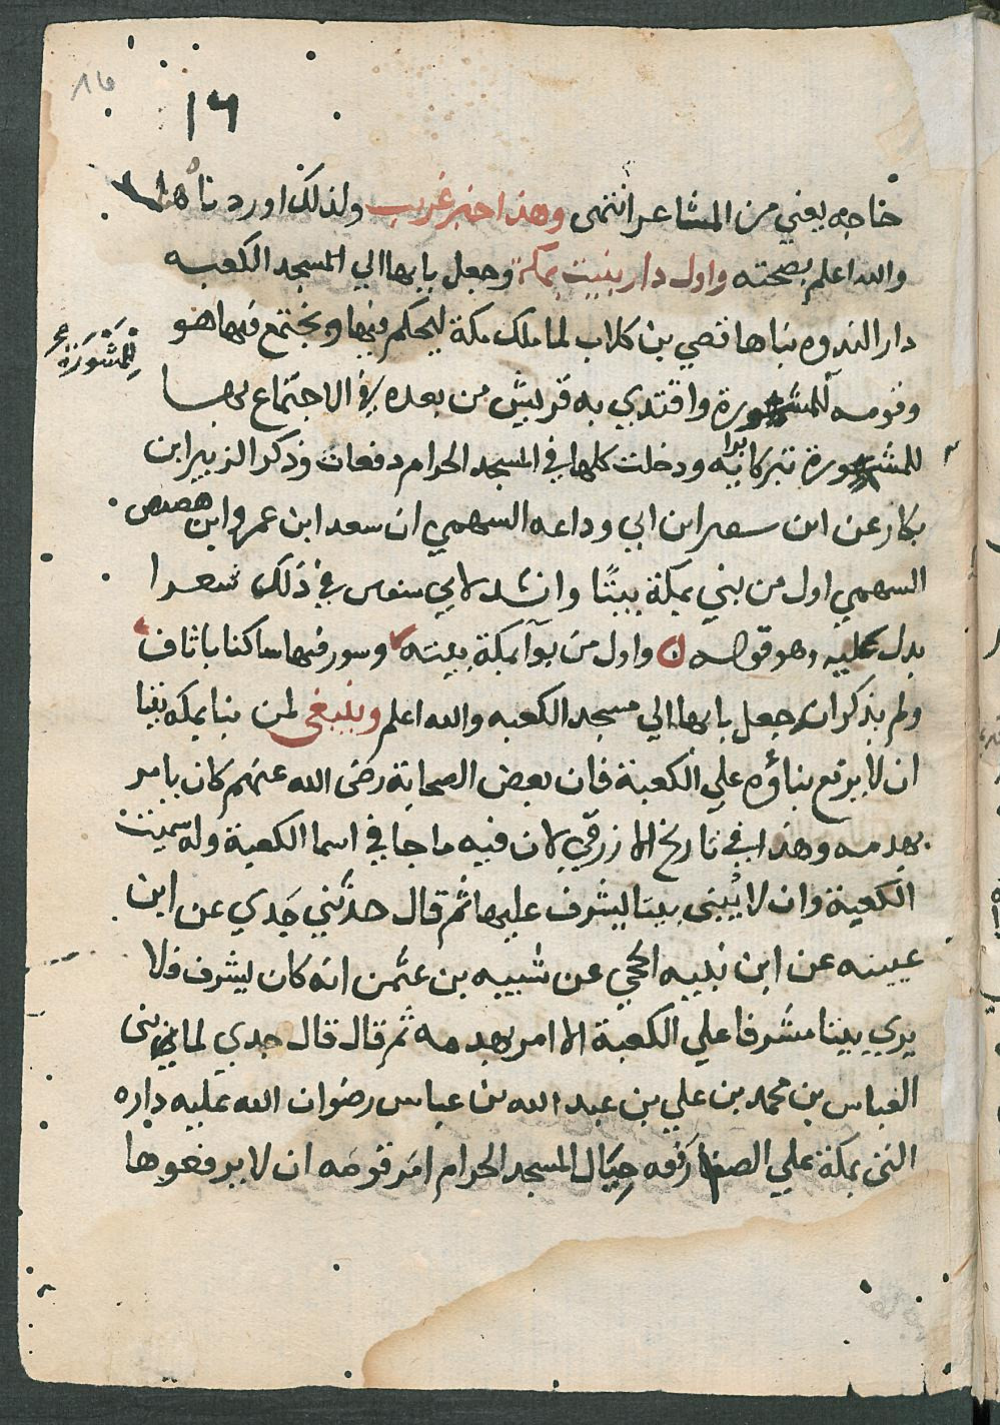 ١٦
خاجه يعني من المشاعر انتهى وهذا خبر غريب ولذلك اوردناه
والله اعلم بصحته واول دار بنيت بمكة وجعل بابها الي المسجد الكعبه
دار الندوه بناها قصي بن كلاب لما ملك مكة ليحكم فيها ويجتمع فيها هو
للمشورة
وقومه للمشورة واقتدي به قريش من بعده في الاجتماع بها
للمشورة تبركا به ودخلت كلها في المسجد الحرام دفعات وذكر الزبير ابن
بكار عن ابن سعير ابن ابي وداعه السهمي ان سعد ابن عمرو ابن هصيص
السهمي اول من بني بمكة بيتًا وانشد لابي سنوس في ذلك شعرا
يدل عليه وهو قوله واول من بوآ بمكة بيته وسور فيها ساكنا باثاف
ولم يذكر ان جعل بابها الي مسجد الكعبه والله اعلم وينبغي لمن بنا بمكه بيتا
ان لا يرتع بناؤه علي الكعبة فان بعض الصحابة رضى الله عنهم كان يامر
بهدمه وهذا في تاريخ الازرقي لان فيه ما جا في اسما الكعبة ولم سميت
الكعبة وان لا يبنى بيتا ليشرف عليها ثم قال حدثني جدي عن ابن
عيينه عن ابن نبيه الحجي عن شيبه بن عثمن انه كان يشرف فلا
يري بيتا مشرفا علي الكعبة الا امر بهدمه ثم قال قال جدي لما بنى
العباس بن محمد بن علي بن عبد الله بن عباس رضوان الله عليه داره
التى بمكة علي الصفا رفعه حيال المسجد الحرام امر قومه ان لا يرفعوها